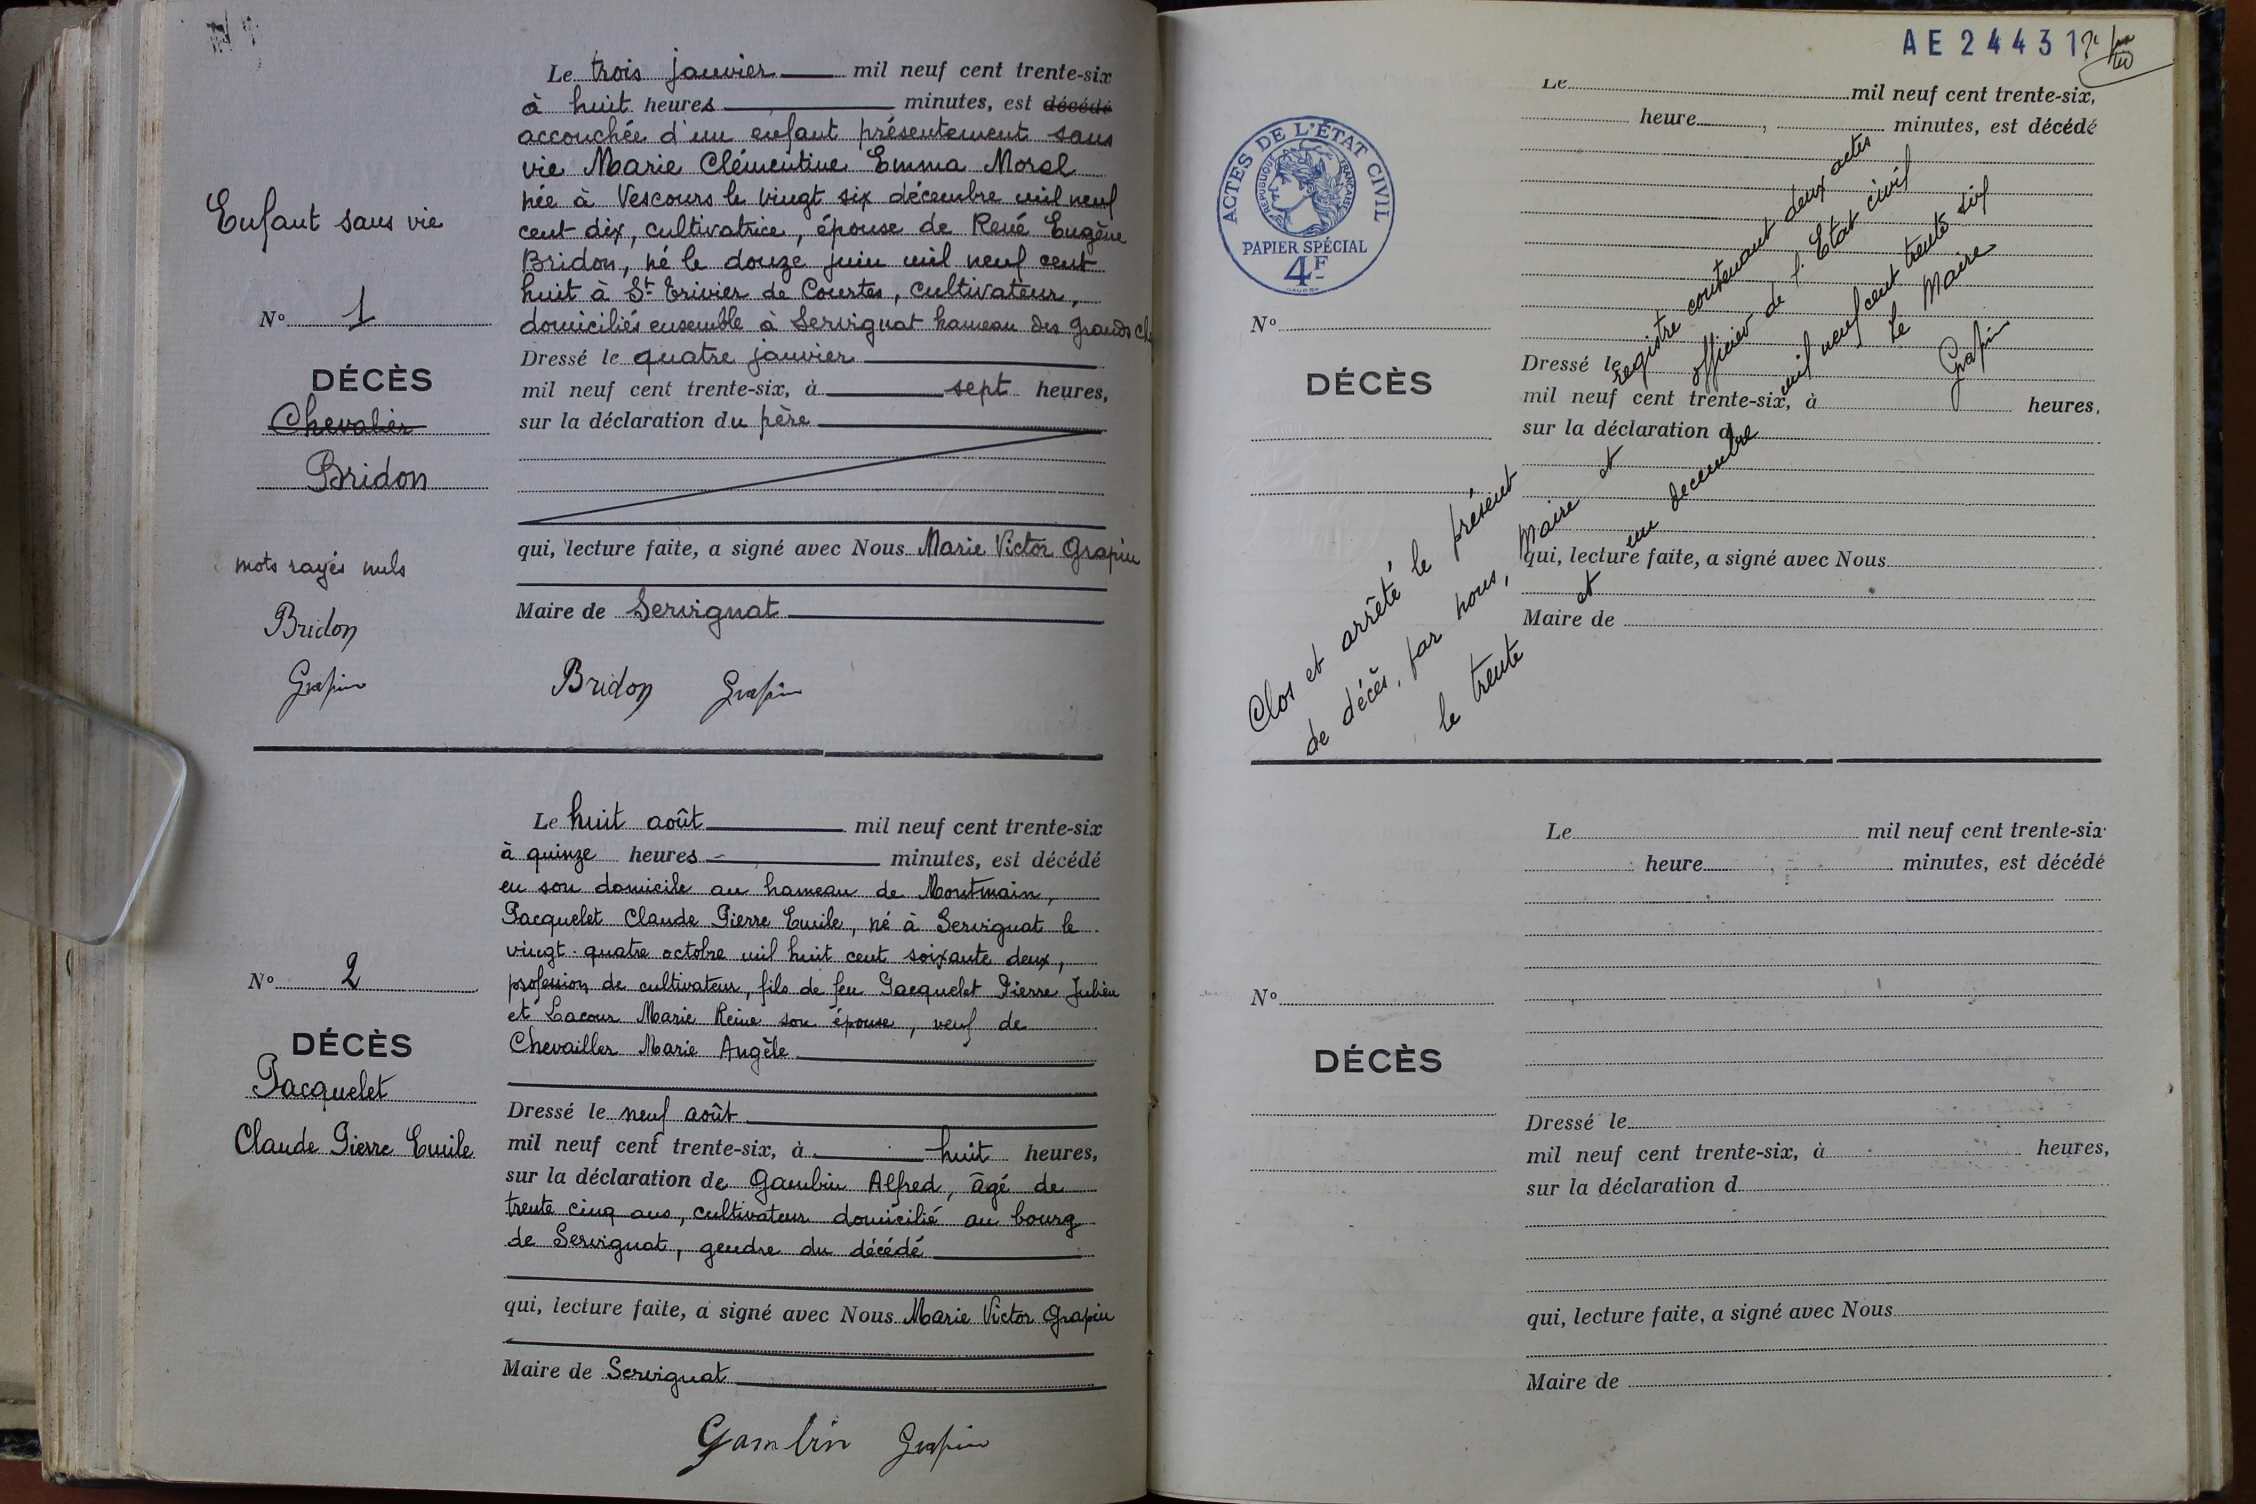 Le trois janvier mil neuf cent trente-six
à huit heures minutes, est décédé
accouchée d'un enfant présentement sans
vie Marie Clémentine Emma Morel
née à Vescours le vingt six décembre mil neuf
cent dix, cultivatrice, épouse de René Eugène
Bridon, né le douze juin mil neuf cent
huit à St Trivier de Courtes, cultivateur,
domiciliés ensemble à Servignat hameau des Grands
Enfant sans vie
No 1
DÉCÈS
Chevalier
Bridon
Dressé le quatre janvier
mil neuf cent trente-six, à sept heures,
sur la déclaration du père
qui, lecture faite, a signé avec Nous Marie Victor Grapin
Maire de Servignat
mots rayés nuls
Bridon
Grapin
Bridon Grapin
Le huit août mil neuf cent trente-six
à quinze heures minutes, est décédé
en son domicile au hameau de Montmain,
Pacquelet Claude Pierre Emile, né à Servignat le
vingt-quatre octobre mil huit cent soixante deux,
profession de cultivateur, fils de feu Pacquelet Pierre Julien
et Lacour Marie Reine son épouse, veuf de
Chevailler Marie Angèle
No 2
DÉCÈS
Pacquelet
Claude Pierre Emile
Dressé le neuf août
mil neuf cent trente-six, à huit heures,
sur la déclaration de Gambin Alfred, âgé de
trente cinq ans, cultivateur domicilié au bourg
de Servignat, gendre du décédé
qui, lecture faite, a signé avec Nous Marie Victor Grapin
Maire de Servignat
Gambin Grapin
AE 24431
ACTES DE L'ÉTAT CIVIL
RÉPUBLIQUE FRANÇAISE
PAPIER SPÉCIAL
4F
Le mil neuf cent trente-six,
heure , minutes, est décédé
No
DÉCÈS
Dressé le
mil neuf cent trente-six, à heures,
sur la déclaration d
qui, lecture faite, a signé avec Nous
Maire de
Clos et arrêté le présent registre contenant deux actes
de décès, par nous, Maire et officier de l'Etat civil
le trente et un decembre mil neuf cent trente six
Le Maire
Grapin
Le mil neuf cent trente-six
heure , minutes, est décédé
No
DÉCÈS
Dressé le
mil neuf cent trente-six, à heures,
sur la déclaration d
qui, lecture faite, a signé avec Nous
Maire de